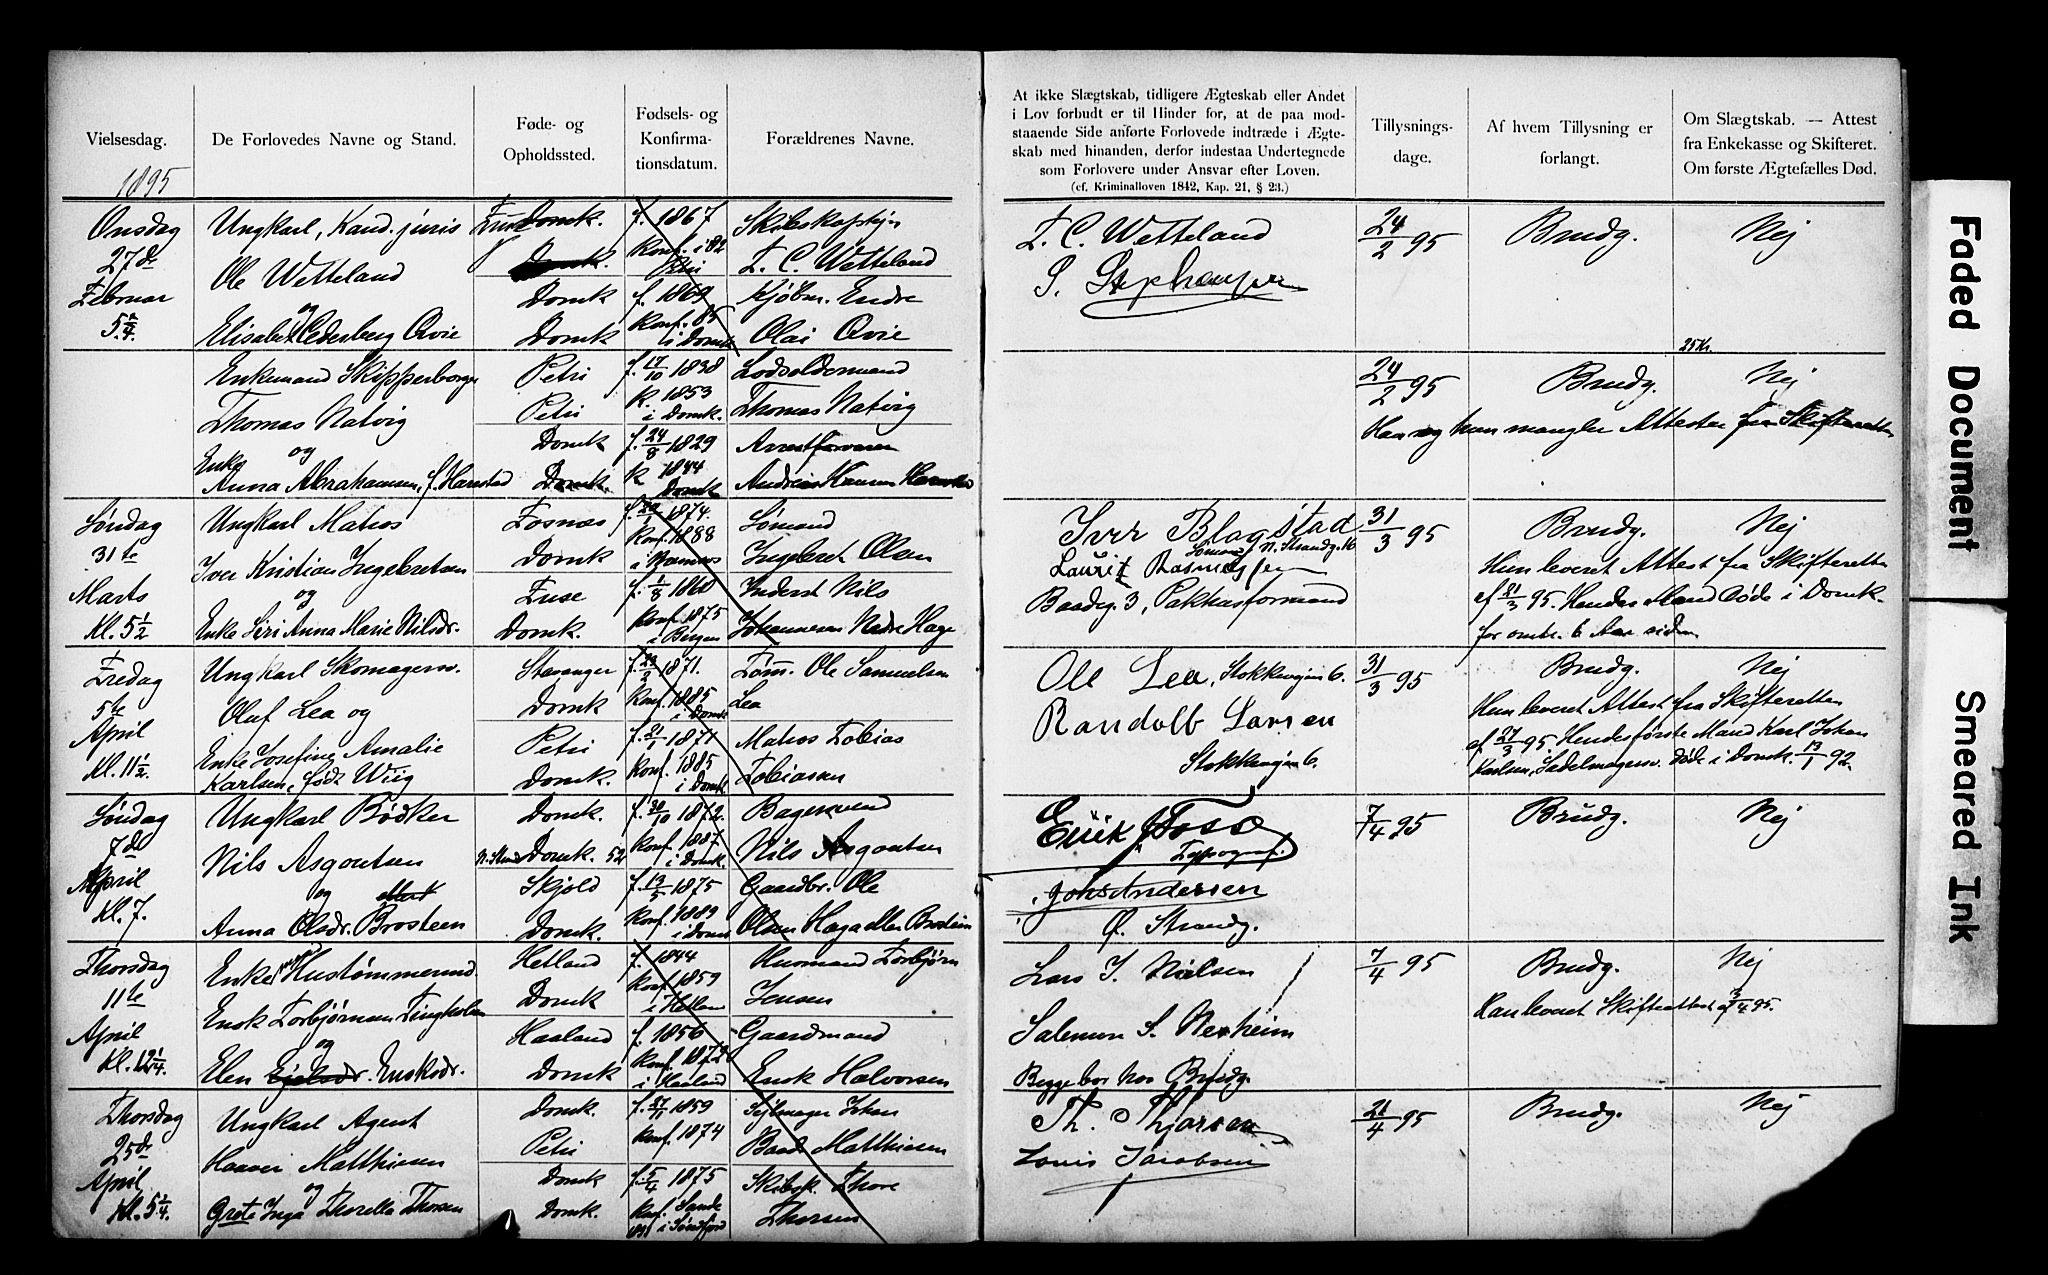 Vielsesdag.
De Forlovedes Navne og Stand.
Føde- og
Opholdssted.
Fødsels- og
Konfirma-
tionsdatum.
Forældrenes Navne.
1895
Onsdag
27de
Februar
5 1/4.
Ungkarl, Kand. juris
Ole Wetteland
og
Elisabet Cederberg Qvie
Domk.
Domk.
Domk
Domk
f. 1867
Konf. i 82
Petri
f. 1869
Konf. 85
i Domk
Skibskaptejn
T. C. Wetteland
Kjøbm. Endre
Olai Qvie
Enkemand Skipperborger
Thomas Natvig
og
Enke
Anna Abrahamsen, f. Harestad
Petri
Petri
Domk
Domk.
f. 17/10 1838
k. 1853
i Domk.
f. 24/8 1829
k 1844
Domk
Lodsoldermand
Thomas Natvig
Arrestforvarer
Andreas Hansen
Søndag
31te
Marts
Kl. 5 1/2
Ungkarl Matros
Iver Kristian Ingebretsen
og
Enke Siri Anna Marie Nilsdr.
Fosnæs
Domk
Fuse
Domk.
1874.
Konf. 1888
f. 1/8 1860
Konf. 1875
i Bergen
Sømand
Ingebret Olsen
Inderst Nils
Johannesen Nedre Hage
Fredag
5te
April
Kl. 11 1/2.
Ungkarl Skomagersv.
Oluf Lea og
Enke Josefine Amalie
Karlsen, født Wiig
Stavanger
Domk
Petri
Domk.
1871.
Konf. 1885
i Domk
f. 21/1 1871
Konf. 1885
i Domk
Tøm. Ole Samuelsen
Lea
Matros Tobias
Tobiasen
Søndag
7de
April
Kl. 7.
Ungkarl Bødker
Nils Asgautsen
og
Anna Olsdr. Brosteen
Domk.
N. Strand Domk. 52
Skjold
Domk.
f. 30/10 1872.
Konf. 1887
i Domk.
f. 13/5 1875
Konf. 1889
i Domk
Bagersvend
Nils Asgautsen
Gaardbr. Ole
Olsen Haga eller Brosteen
Thorsdag
11te
April
Kl. 12 1/4.
Enkem. Hustømmermd.
Ensk Torbjørnsen Tingholm
og
Elen Ejelsdr. Enskdr.
Hetland
Domk
Haaland
Domk
f. 1844
Konf. 1859
i Hetland
f. 1856
Konf. 1872
i Haaland
Husmand Torbjørn
Jensen
Gaardmand
Ensk Halvorsen
Thorsdag
25de
April
Kl. 5 1/4.
Ungkarl Agent
Haaver Matthiesen
og
Grete Inga Thorella Thorsen
Domk.
Petri
Domk
Domk.
f. 27/11 1859
Konf. 1874
f. 5/4 1875
Konf. Sande
i Søndfjord
Sejlmager Johan
Baad Matthiesen
Skibsk. Thore
Thorsen
At ikke Slægtskab, tidligere Ægteskab eller Andet
i Lov forbudt er til Hinder for, at de paa mod-
staaende Side anførte Forlovede indtræde i Ægte-
skab med hinanden, derfor indestaa Undertegnede
som Forlovere under Ansvar efter Loven.
(cf. Kriminalloven 1842, Kap. 21, § 23.)
Tillysnings-
dage.
Af hvem Tillysning er
forlangt.
Om Slægtskab. — Attest
fra Enkekasse og Skifteret.
Om første Ægtefælles Død.
T. C. Wetteland
S. Stephansen
24/2 95
Brudg.
Nej
25 Kr.
24/2 95
Brudg.
Nej
Han og hun mangler Attester fra Skifteretten
Iver Blagstad
Lauritz Rasmussen
Baadeg. 3, Pakhusformand
31/3 95
Brudg.
Nej
Hun leveret Attest fra Skifteretten
af 21/3 95. Hendes Mand døde i Domk.
for omtr. 6 Aar siden
Ole Lea, Stokkevejen 6.
Randolb Larsen
Stokkevejen 6.
31/3 95
Brudg.
Nej
Hun leveret Attest fra Skifteretten
af 27/3 95. Hendes første Mand Karl Johan
Karlsen, Sadelmagersv. døde i Domk. 13/1 92.
Erik Fosse
Typograf.
Johs Andersen
Ø. Strandg.
7/4 95
Brudg.
Nej
Lars I. Nielsen
Salemon S. Nesheim
Begge bor hos Brudg.
7/4 95
Brudg.
Nej
Han leveret Skifteattest af 3/4 95.
Th. Thjorsen
Louis Jacobsen
21/4 95
Brudg.
Nej
Faded Document
Smeared Ink